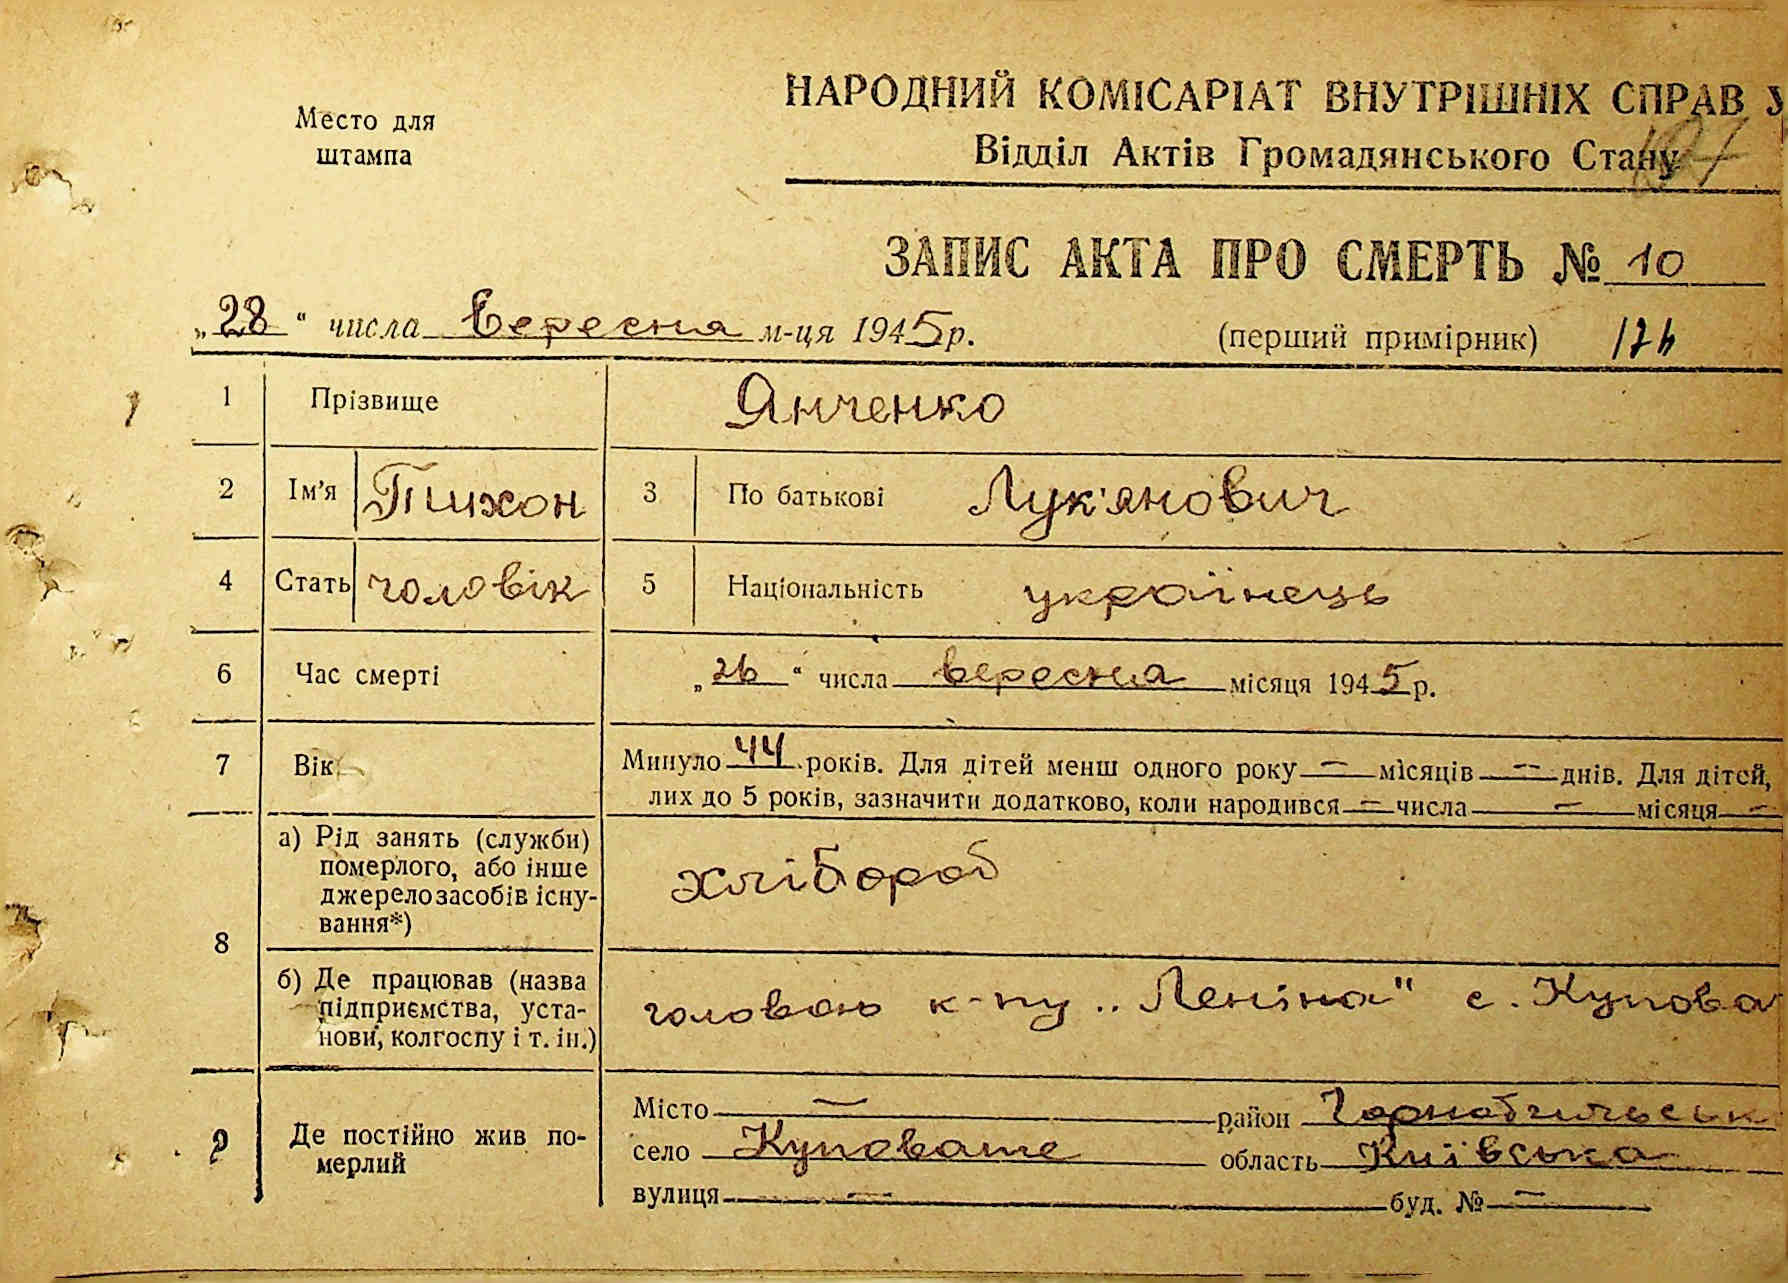 Место для
штампа
НАРОДНИЙ КОМІСАРІАТ ВНУТРІШНІХ СПРАВ У
Відділ Актів Громадянського Стану
ЗАПИС АКТА ПРО СМЕРТЬ № 10
„28“ числа вересня м-ця 1945р. (перший примірник)
1 Прізвище Янченко
2 Ім'я Тихон 3 По батькові Лук'янович
4 Стать чоловік 5 Національність українець
6 Час смерті „26“ числа вересня місяця 1945р.
7 Вік Минуло 44 років. Для дітей менш одного року — місяців — днів. Для дітей,
лих до 5 років, зазначити додатково, коли народився — числа — місяця —
8 а) Рід занять (служби)
померлого, або інше
джерело засобів існу-
вання*)
хлібороб
б) Де працював (назва
підприємства, уста-
нови, колгоспу і т. ін.)
головою к-пу „Леніна" с. Купова
9 Де постійно жив по-
мерлий
Місто — район Чорнобильськ
село Куповате область Київська
вулиця — буд. № —